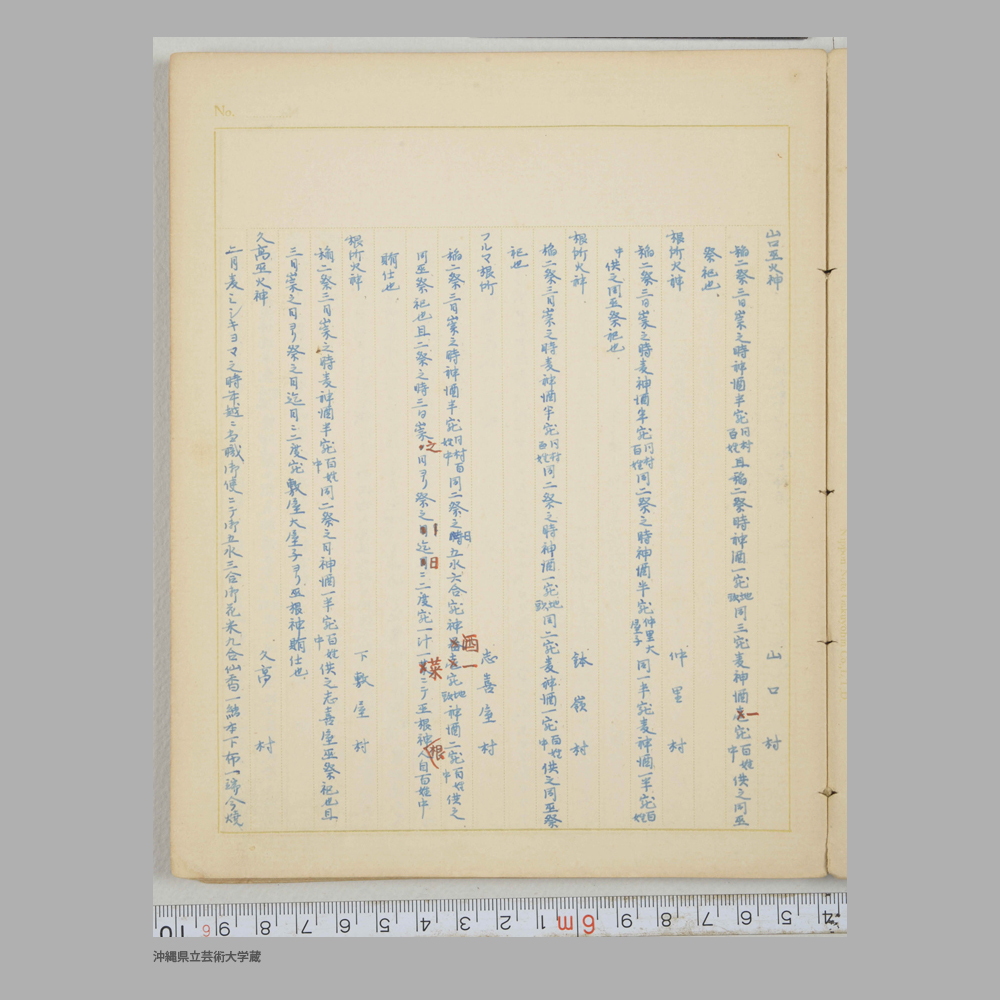 No.
山口巫火神 山口村
稲二祭三日崇之時神酒半宛同村百姓且稲二祭時神酒一宛地頭同三宛麦神酒一宛百姓中供之同巫
祭祀也
根所火神 仲里村
稲二祭三日崇之時麦神酒半宛同村百姓同二祭之時神酒半宛仲里大屋子同一半宛麦神酒一半宛百姓
中供之同巫祭祀也
根所火神 鉢嶺村
稲二祭三日崇之時麦神酒半宛同村百姓同二祭之時神酒一宛地頭同二宛麦神酒一宛百姓中供之同巫祭
祀也
フルマ根所 志喜屋村
稲二祭三日崇之時神酒半宛同村百姓中同二祭之日五水六合宛神酒一宛地頭神酒二宛百姓中供之
同巫祭祀也且二祭之時三日崇之日ヨリ祭之日迄日二二度宛一汁一菜ニテ巫根神人自百姓中
賄仕也
根所火神 下敷屋村
稲二祭三日崇之時麦神酒半宛百姓中同二祭之日神酒一半宛百姓中供之志喜屋巫祭祀也且
三日崇之日ヨリ祭之日迄日二二度宛敷屋大屋子ヨリ巫根神賄仕也
久高巫火神 久高村
二月麦ミシキヨマ之時年越ニ当職御使ニテ御五水三合御花米九合仙香一結本下布一端今焼
沖縄県立芸術大学蔵